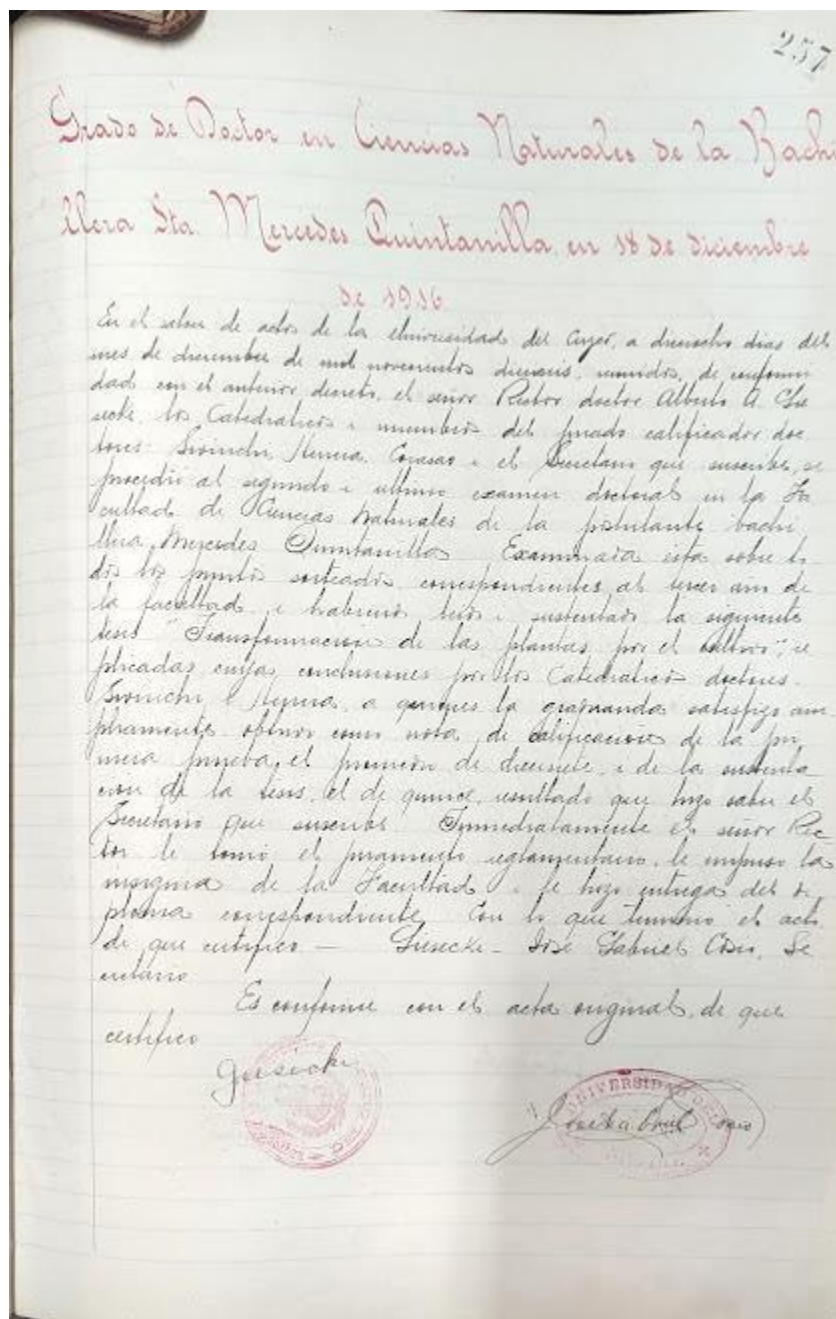 257
Grado de Doctor en Ciencias Naturales de la Bachi
llera Sta. Mercedes Quintanilla, en 18 de diciembre
de 1916
En el salon de actos de la Universidad del Cuzco, a dieciocho dias del
mes de diciembre de mil novecientos dieciseis, reunidos, de conformi
dad con el anterior decreto, el señor Rector doctor Alberto A. Gie
secke, los Catedráticos i miembros del jurado calificador doc
tores Herrera, i el Secretario que suscribe, se
procedió al segundo i último examen doctoral en la Fa
cultad de Ciencias Naturales de la postulante bachi
llera Mercedes Quintanilla Examinada esta sobre to
dos los puntos sorteados correspondientes al tercer año de
la facultad i habiendo leido i sustentado la siguiente
tesis "Transformacion de las plantas por el cultivo"; re
plicadas cuyas conclusiones por los Catedráticos doctores
i Herrera, a quienes la graduanda satisfizo am
pliamente, obtuvo como nota de calificacion de la pri
mera prueba, el promedio de diecisiete, i de la sustenta
cion de la tesis, el de quince, resultado que hizo saber el
Secretario que suscribe. Inmediatamente el señor Rec
tor le tomó el juramento reglamentario, le impuso la
insignia de la Facultad i le hizo entrega del di
ploma correspondiente Con lo que terminó el acto
de que certifico — Giesecke - José Gabriel Cosio, Se
cretario
Es conforme con el acta original, de que
certifico
Giesecke
José Gabriel Cosio
UNIVERSIDAD DEL